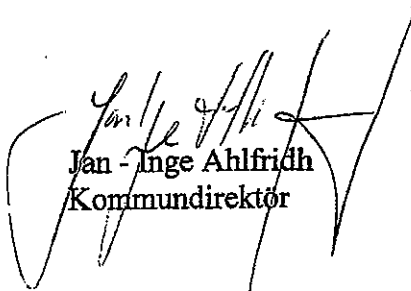 Jan - Inge Ahlfridh
Kommundirektör